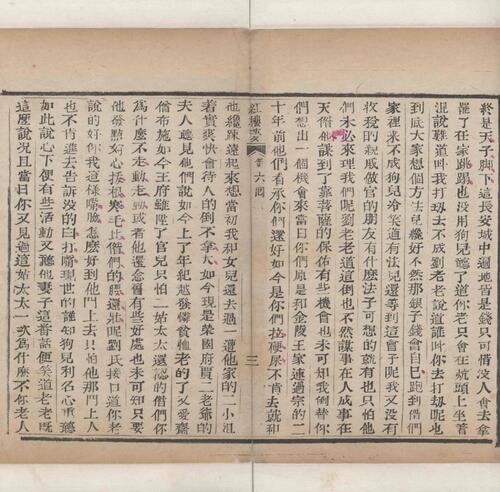 終是天子脚下這長安城中遍地皆是錢只可惜沒人會去拿
罷了在家跳蹋也沒用狗兒聽了道你老只會在炕頭上坐着
混說難道叫我打刼去不成劉老老說道誰叫你去打刼呢也
到底大家想個方法兒纔好不然那銀子錢會自己跑到偺們
家裡來不成狗兒冷笑道有法兒還等到這會子呢我又沒有
收稅的親戚做官的朋友有什麽法子可想的就有也只怕他
們未必來理我們呢劉老老道這倒也不然謀事在人成事在
天偺們謀到了靠菩薩的保佑有些機會也未可知我倒替你
們想出一個機會來當日你們原是和金陵王家連過宗的二
十年前他們看承你們還好如今是你們拉硬屎不肯去就和
紅樓夢 第六回 三
他纔疎遠起來想當初我和女兒還去過一遭他家的二小姐
着實爽快會待人的倒不拿大如今現是榮國府賈二老爺的
夫人聽見他們說如今上了年紀越發憐貧恤老的了又愛齋
僧布施如今王府雖陞了官兒只怕二姑太太還認的偺們你
爲什麽不走動走動或者他還念舊有些好處也未可知只要
他發點好心拔根寒毛比偺們的腰還壯呢劉氏接口道你老
說的好你我這樣嘴臉怎麽好到他門上去只怕他那門上人
也不肯進去告訴沒的白打嘴現世的誰知狗兒利名心重聽
如此說心下便有些活動又聽他妻子這番話便笑道老老既
這麽說況且當日你又見過這姑太太一次爲什麽不你老人